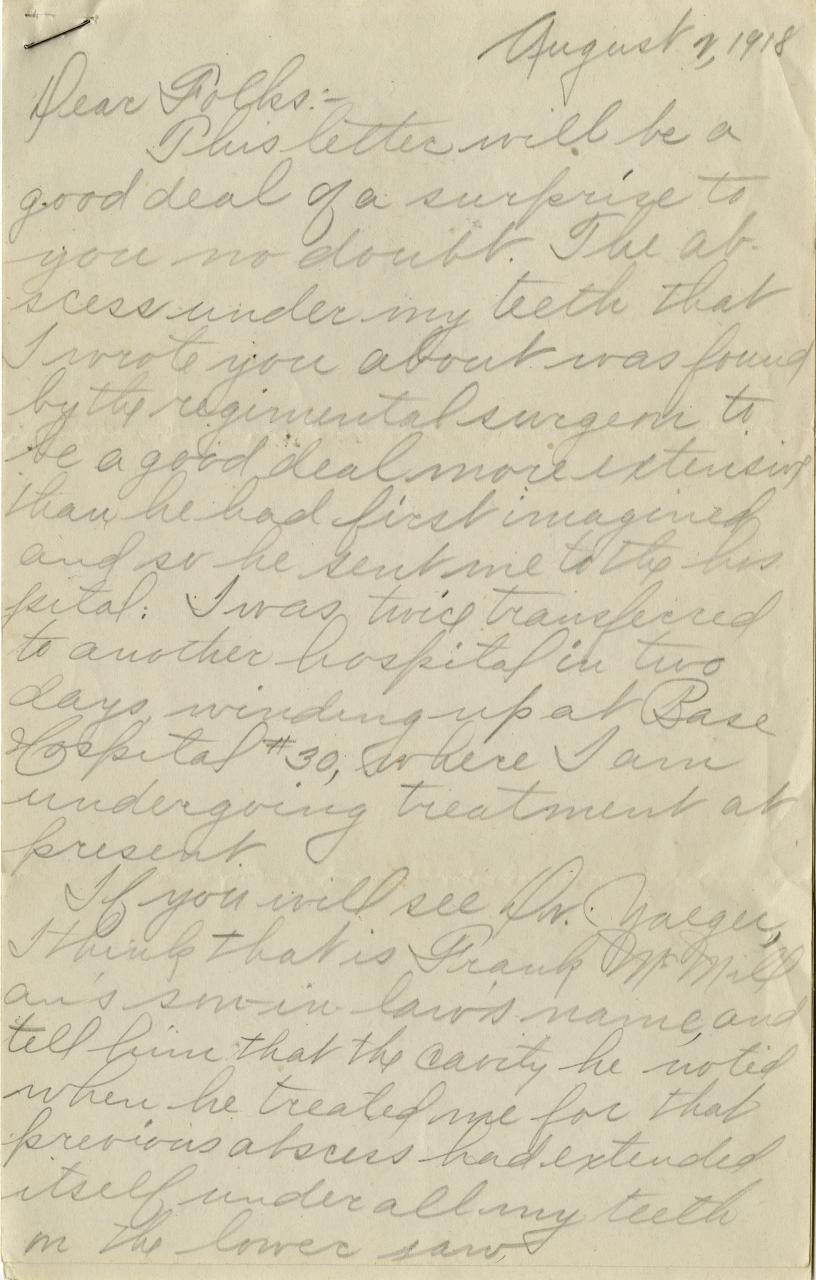 August 2, 1918
Dear Folks:-
This letter will be a
good deal of a surprise to
you no doubt. The ab-
scess under my teeth that
I wrote you about was found
by the regimental surgeon to
be a good deal more extensive
than he had first imagined
and so he sent me to the hos
pital. I was twice transferred
to another hospital in two
days, winding up at Base
Hospital #30, where I am
undergoing treatment at
present
If you will see Dr. Yaeger,
I think that is Frank McMill
an's son-in-law's name, and
tell him that the cavity he noted
when he treated me for that
previous abscess had extended
itself under all my teeth
on the lower jaw,